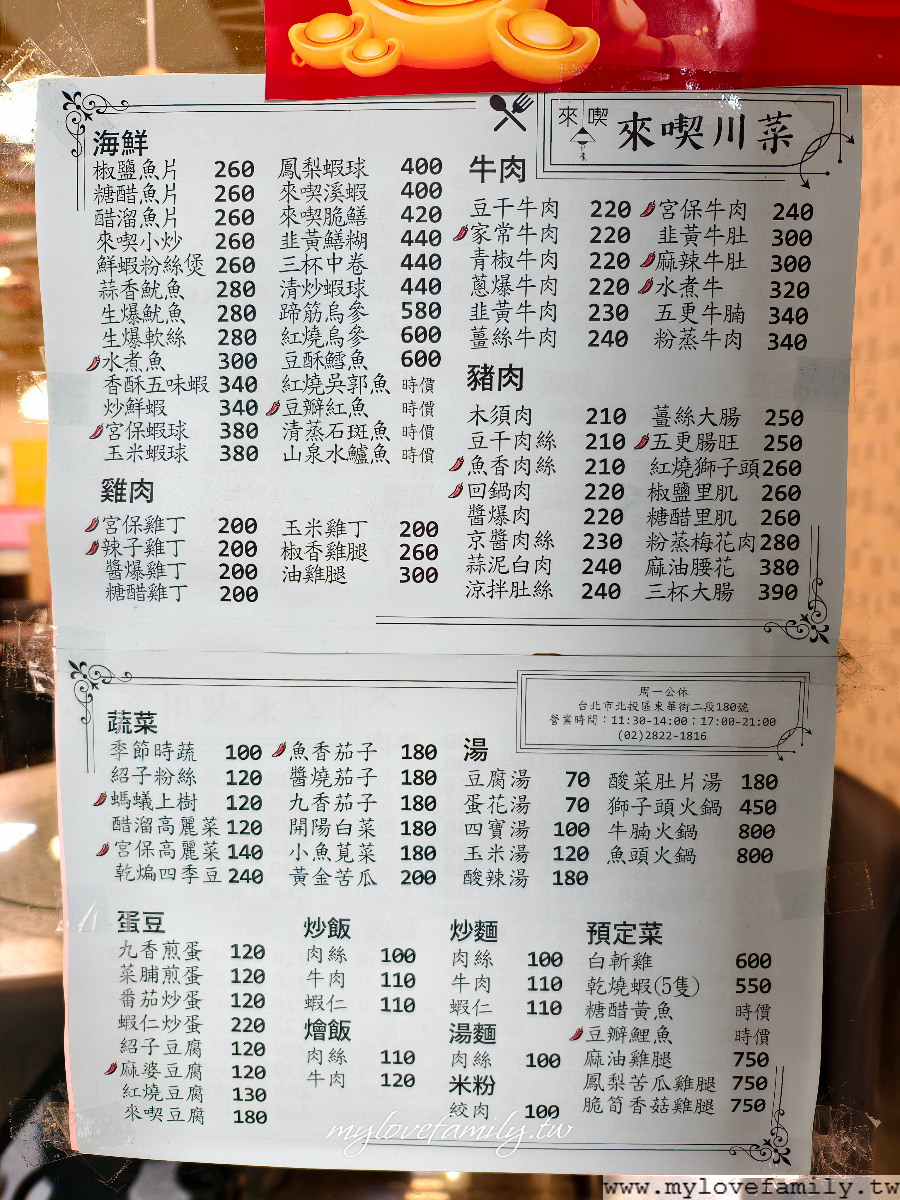 來喫
來喫川菜
海鮮
椒鹽魚片 260
糖醋魚片 260
醋溜魚片 260
來喫小炒 260
鮮蝦粉絲煲 260
蒜香魷魚 280
生爆魷魚 280
生爆軟絲 280
水煮魚 300
香酥五味蝦 340
炒鮮蝦 340
宮保蝦球 380
玉米蝦球 380
鳳梨蝦球 400
來喫溪蝦 400
來喫脆鱔 420
韭黃鱔糊 440
三杯中卷 440
清炒蝦球 440
蹄筋烏參 580
紅燒烏參 600
豆酥鱈魚 600
紅燒吳郭魚 時價
豆瓣紅魚 時價
清蒸石斑魚 時價
山泉水鱸魚 時價
雞肉
宮保雞丁 200
辣子雞丁 200
醬爆雞丁 200
糖醋雞丁 200
玉米雞丁 200
椒香雞腿 260
油雞腿 300
牛肉
豆干牛肉 220
家常牛肉 220
青椒牛肉 220
蔥爆牛肉 220
韭黃牛肉 230
薑絲牛肉 240
宮保牛肉 240
韭黃牛肚 300
麻辣牛肚 300
水煮牛 320
五更牛腩 340
粉蒸牛肉 340
豬肉
木須肉 210
豆干肉絲 210
魚香肉絲 210
回鍋肉 220
醬爆肉 220
京醬肉絲 230
蒜泥白肉 240
涼拌肚絲 240
薑絲大腸 250
五更腸旺 250
紅燒獅子頭 260
椒鹽里肌 260
糖醋里肌 260
粉蒸梅花肉 280
麻油腰花 380
三杯大腸 390
周一公休
台北市北投區東華街二段180號
營業時間：11:30-14:00；17:00-21:00
(02)2822-1816
蔬菜
季節時蔬 100
紹子粉絲 120
螞蟻上樹 120
醋溜高麗菜 120
宮保高麗菜 140
乾煸四季豆 240
魚香茄子 180
醬燒茄子 180
九香茄子 180
開陽白菜 180
小魚莧菜 180
黃金苦瓜 200
湯
豆腐湯 70
蛋花湯 70
四寶湯 100
玉米湯 120
酸辣湯 180
酸菜肚片湯 180
獅子頭火鍋 450
牛腩火鍋 800
魚頭火鍋 800
蛋豆
九香煎蛋 120
菜脯煎蛋 120
番茄炒蛋 120
蝦仁炒蛋 220
紹子豆腐 120
麻婆豆腐 120
紅燒豆腐 130
來喫豆腐 180
炒飯
肉絲 100
牛肉 110
蝦仁 110
燴飯
肉絲 110
牛肉 120
炒麵
肉絲 100
牛肉 110
蝦仁 110
湯麵
肉絲 100
米粉
絞肉 100
預定菜
白斬雞 600
乾燒蝦(5隻) 550
糖醋黃魚 時價
豆瓣鯉魚 時價
麻油雞腿 750
鳳梨苦瓜雞腿 750
脆筍香菇雞腿 750
mylovefamily.tw
www.mylovefamily.tw